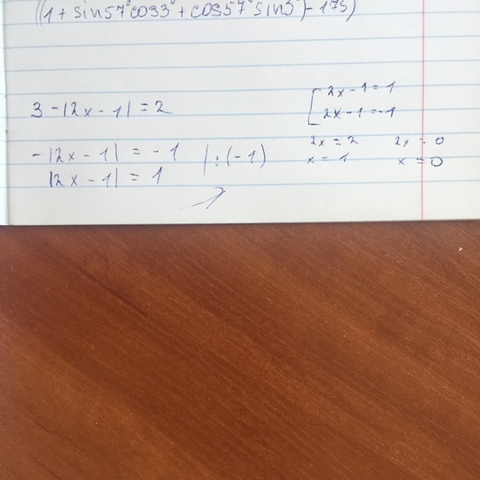 ((1 + sin57°cos3° + cos57°sin3°) - 175)
3 - |2x - 1| = 2
- |2x - 1| = - 1 | : (-1)
|2x - 1| = 1
[ 2x - 1 = 1
2x - 1 = -1
2x = 2 2x = 0
x = 1 x = 0